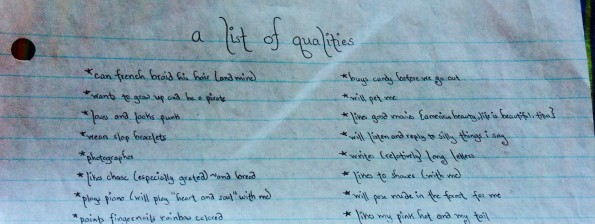 a list of qualities
*can french braid his hair (and mine)
*wants to grow up and be a pirate
*loves and looks punk
*wears slap bracelets
*photographer
*likes cheese (especially grated) ~and bread
*plays piano (will play "heart and soul" with me)
*paints fingernails rainbow colored
*buys candy before we go out
*will pet me
*likes good movies {american beauty, life is beautiful,
*will listen and reply to silly things i say
*writes (relatively) long letters
*likes to shower (with me)
*will pose nude in the forest for me
*likes my pink hat and my tail